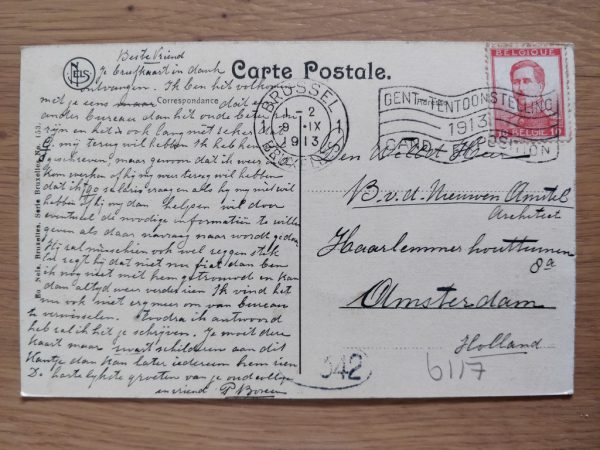 Carte Postale.
Correspondance
Beste Vriend
Je briefkaart in dank
ontvangen. Ik Ben het volkomen
met je eens maar dat je
ander bureau dan het onze beter
zijn en het is ook lang niet zeker
mij terug wil hebben. Ik heb hem
geschreven, maar gewoon dat ik weer
Kom werken of hij me weer terug wil hebben
dat ik 140 salaris vraag en als hij mij niet wil
hebben of hij mij dan helpen wil door
eventueel de noodige informatiën te willen
geven als daar navraag naar wordt gedaan
Hij zal misschien ook wel zeggen
hij dat niet nu
ik nog niet met hem getrouwd en kan
dan altijd weer verder zien. Ik vind het
nu ook niet erg meer om van bureau
te verwisselen. Zoodra ik antwoord
heb zal ik het je schrijven. Je moet deze
kaart maar zwart schilderen aan dit
kantje dan kan later iedereen hem zien
De hartelijkste groeten van je
vriend P
Ed. Nels, Bruxelles. Serie Bruxelles No 153.
NELS
BRUSSEL
1 -2 1
9 · IX
1913
BRUXELLES
GENT TENTOONSTELLING
1913
GAND EXPOSITION
BELGIQUE
10 BELGIË 10
Den WelEd. Heer
B. v. d. Nieuwen Amstel
Architect
Haarlemmer houttuinen
8a
Amsterdam
Holland
342
6117